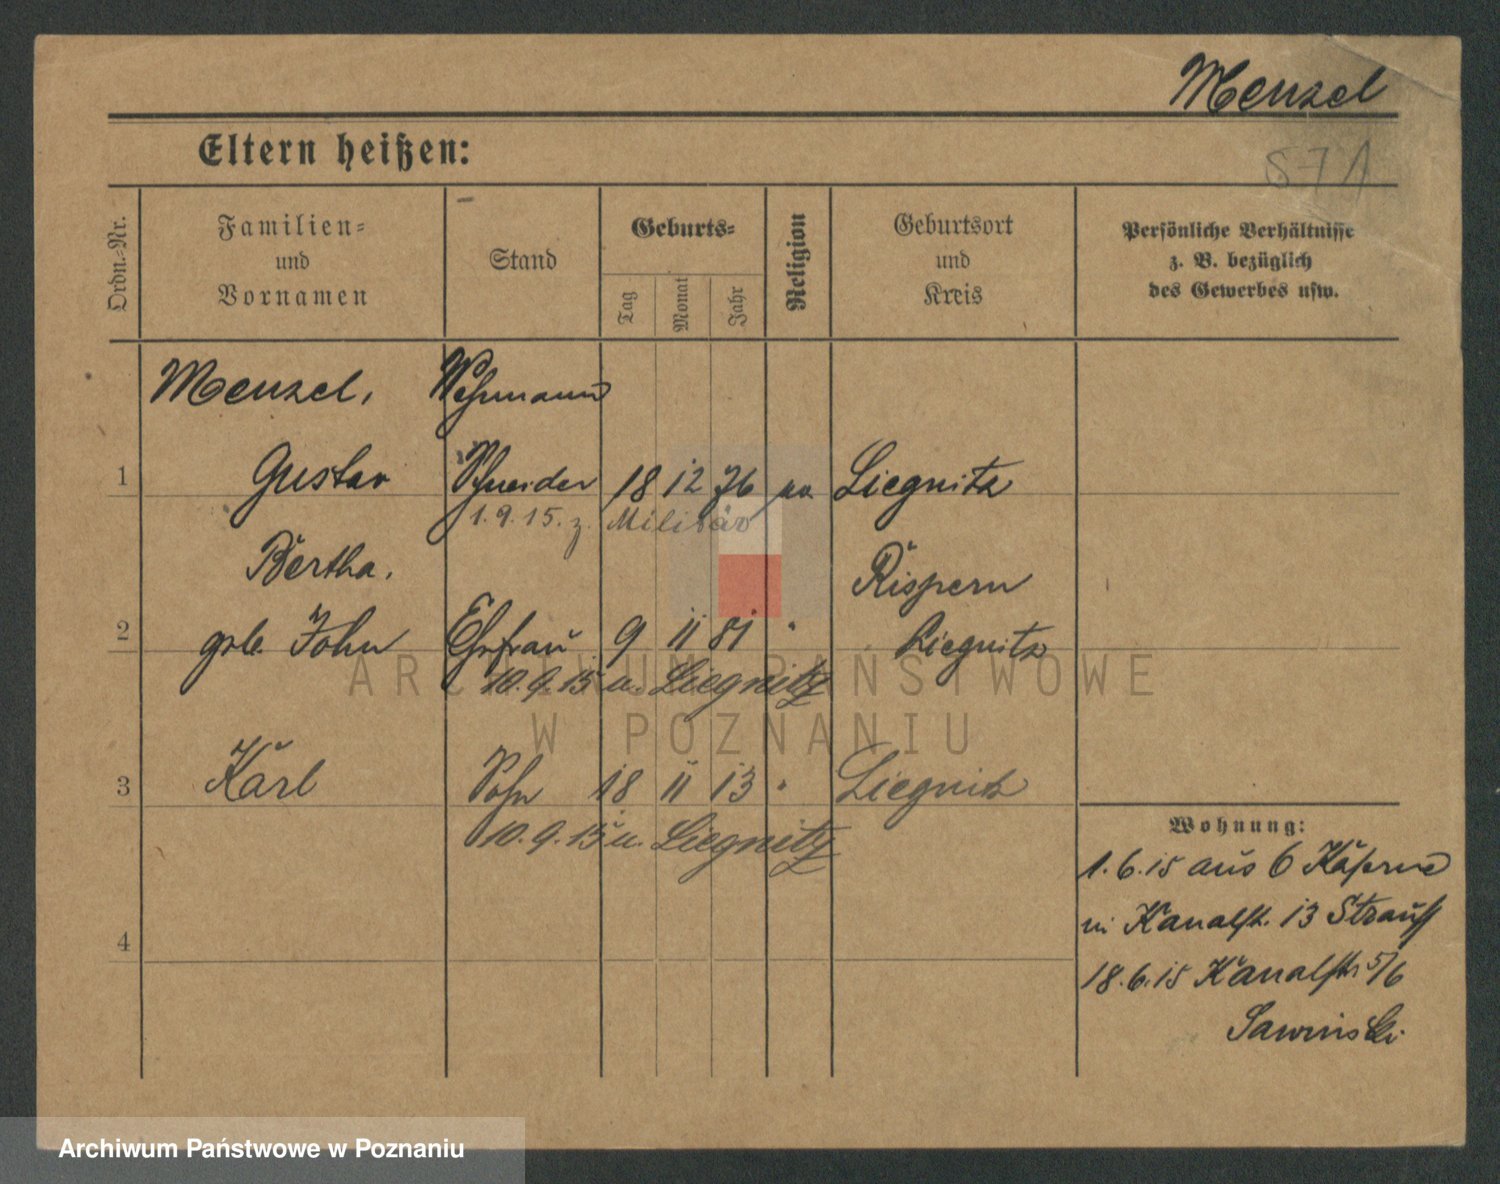 Menzel
571
Eltern heißen:
Ordn.-Nr.
Familien-
und
Vornamen
Stand
Geburts-
Tag
Monat
Jahr
Religion
Geburtsort
und
Kreis
Persönliche Verhältnisse
z. B. bezüglich
des Gewerbes usw.
Menzel, Wehrmann
1 Gustav Schneider 18 12 76 ev. Liegnitz
1.9.15. z. Militär
Bertha,
2 geb. John Ehefrau 9 11 81 " Liegnitz
10.9.15 n. Liegnitz
3 Karl Sohn 18 11 13 " Liegnitz
10.9.15 n. Liegnitz
4
Wohnung:
1.6.15 aus 6 Kaserne
in Kanalstr. 13 Strauß
18.6.15 Kanalstr 5/6
Sawinski
ARCHIWUM PAŃSTWOWE
W POZNANIU
Archiwum Państwowe w Poznaniu